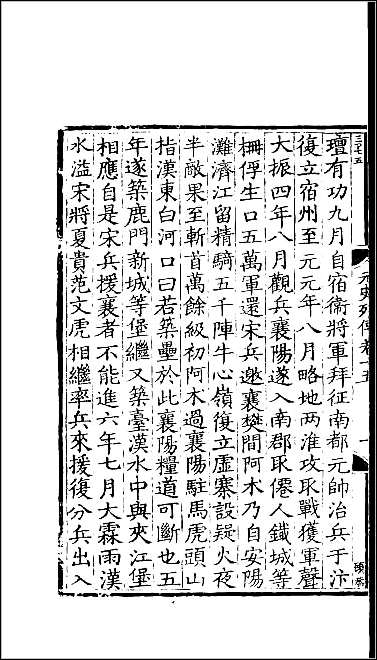 璮有功九月自宿衛將軍拜征南都元帥治兵于汴
復立宿州至元元年八月略地两淮攻取戰獲軍聲
大振四年八月觀兵襄陽遂入南郡取僊人鐵城等
柵俘生口五萬軍還宋兵邀襄樊間阿术乃自安陽
灘濟江留精騎五千陣牛心嶺復立虚寨設疑火夜
半敵果至斬首萬餘級初阿术過襄陽駐馬虎頭山
指漢東白河口曰若築壘於此襄陽糧道可斷也五
年遂築鹿門新城等堡繼又築臺漢水中與夹江堡
相應自是宋兵援襄者不能進六年七月大霖雨漢
水溢宋將夏貴范文虎相繼率兵來援復分兵出入
元史列傳卷十五